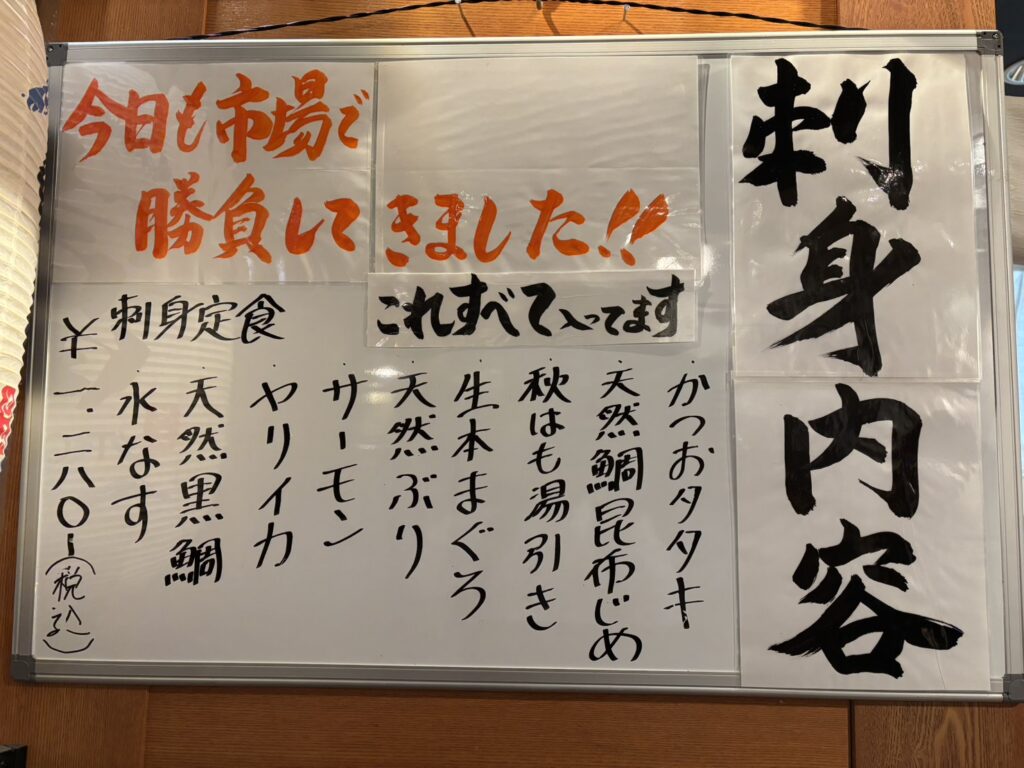 刺身内容
今日も市場で
勝負してきました!!
これすべて入ってます
・かつおタタキ
・天然鯛昆布じめ
・秋はも湯引き
・生本まぐろ
・天然ぶり
・サーモン
・ヤリイカ
・天然黒鯛
・水なす
刺身定食
¥一.二八〇-(税込)